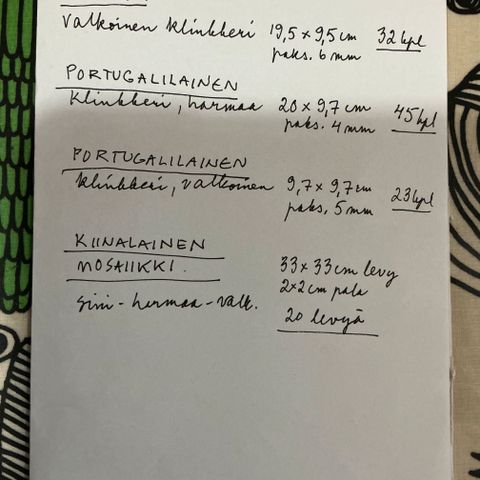 Valkoinen klinkkeri 19,5 x 9,5 cm 32 kpl
paks. 6 mm
PORTUGALILAINEN
klinkkeri, harmaa 20 x 9,7 cm 45 kpl
paks. 4 mm
PORTUGALILAINEN
klinkkeri, valkoinen 9,7 x 9,7 cm 23 kpl
paks. 5 mm
KIINALAINEN
MOSAIIKKI. 33 x 33 cm levy
2x2 cm pala
sini - harmaa - valk.
20 levyä